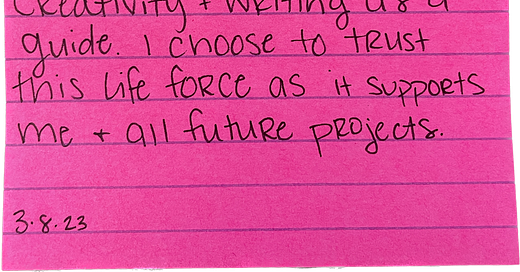 Creativity + writing as a
guide. I choose to trust
this life force as it supports
me + all future projects.
3.8.23